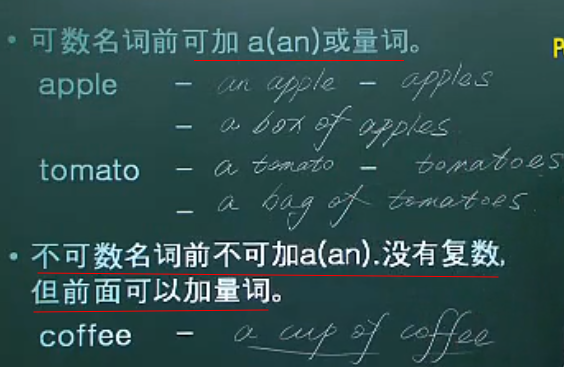 • 可数名词前可加 a(an)或量词。
P
apple – an apple – apples
– a box of apples.
tomato – a tomato – tomatoes
– a bag of tomatoes.
• 不可数名词前不可加a(an).没有复数,
但前面可以加量词。
coffee – a cup of coffee